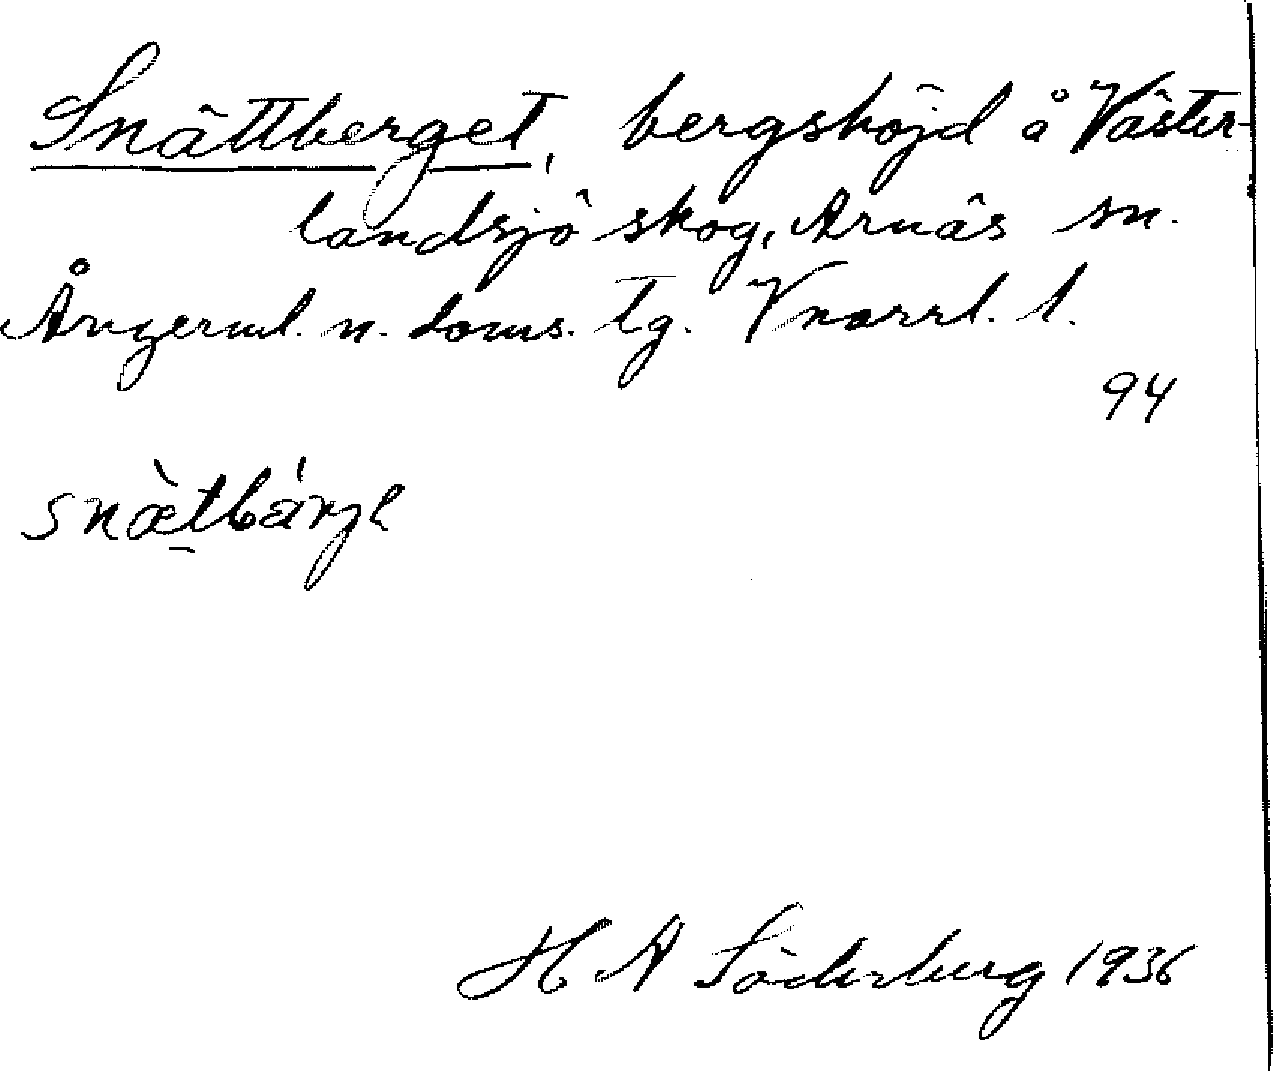 Snättberget, bergshöjd å Väster-
landsjö skog, Arnäs sn.
Ångerml. n. doms. tg. Vnorrl. l.
94
snæ̀tbárje
H A Söderberg 1936